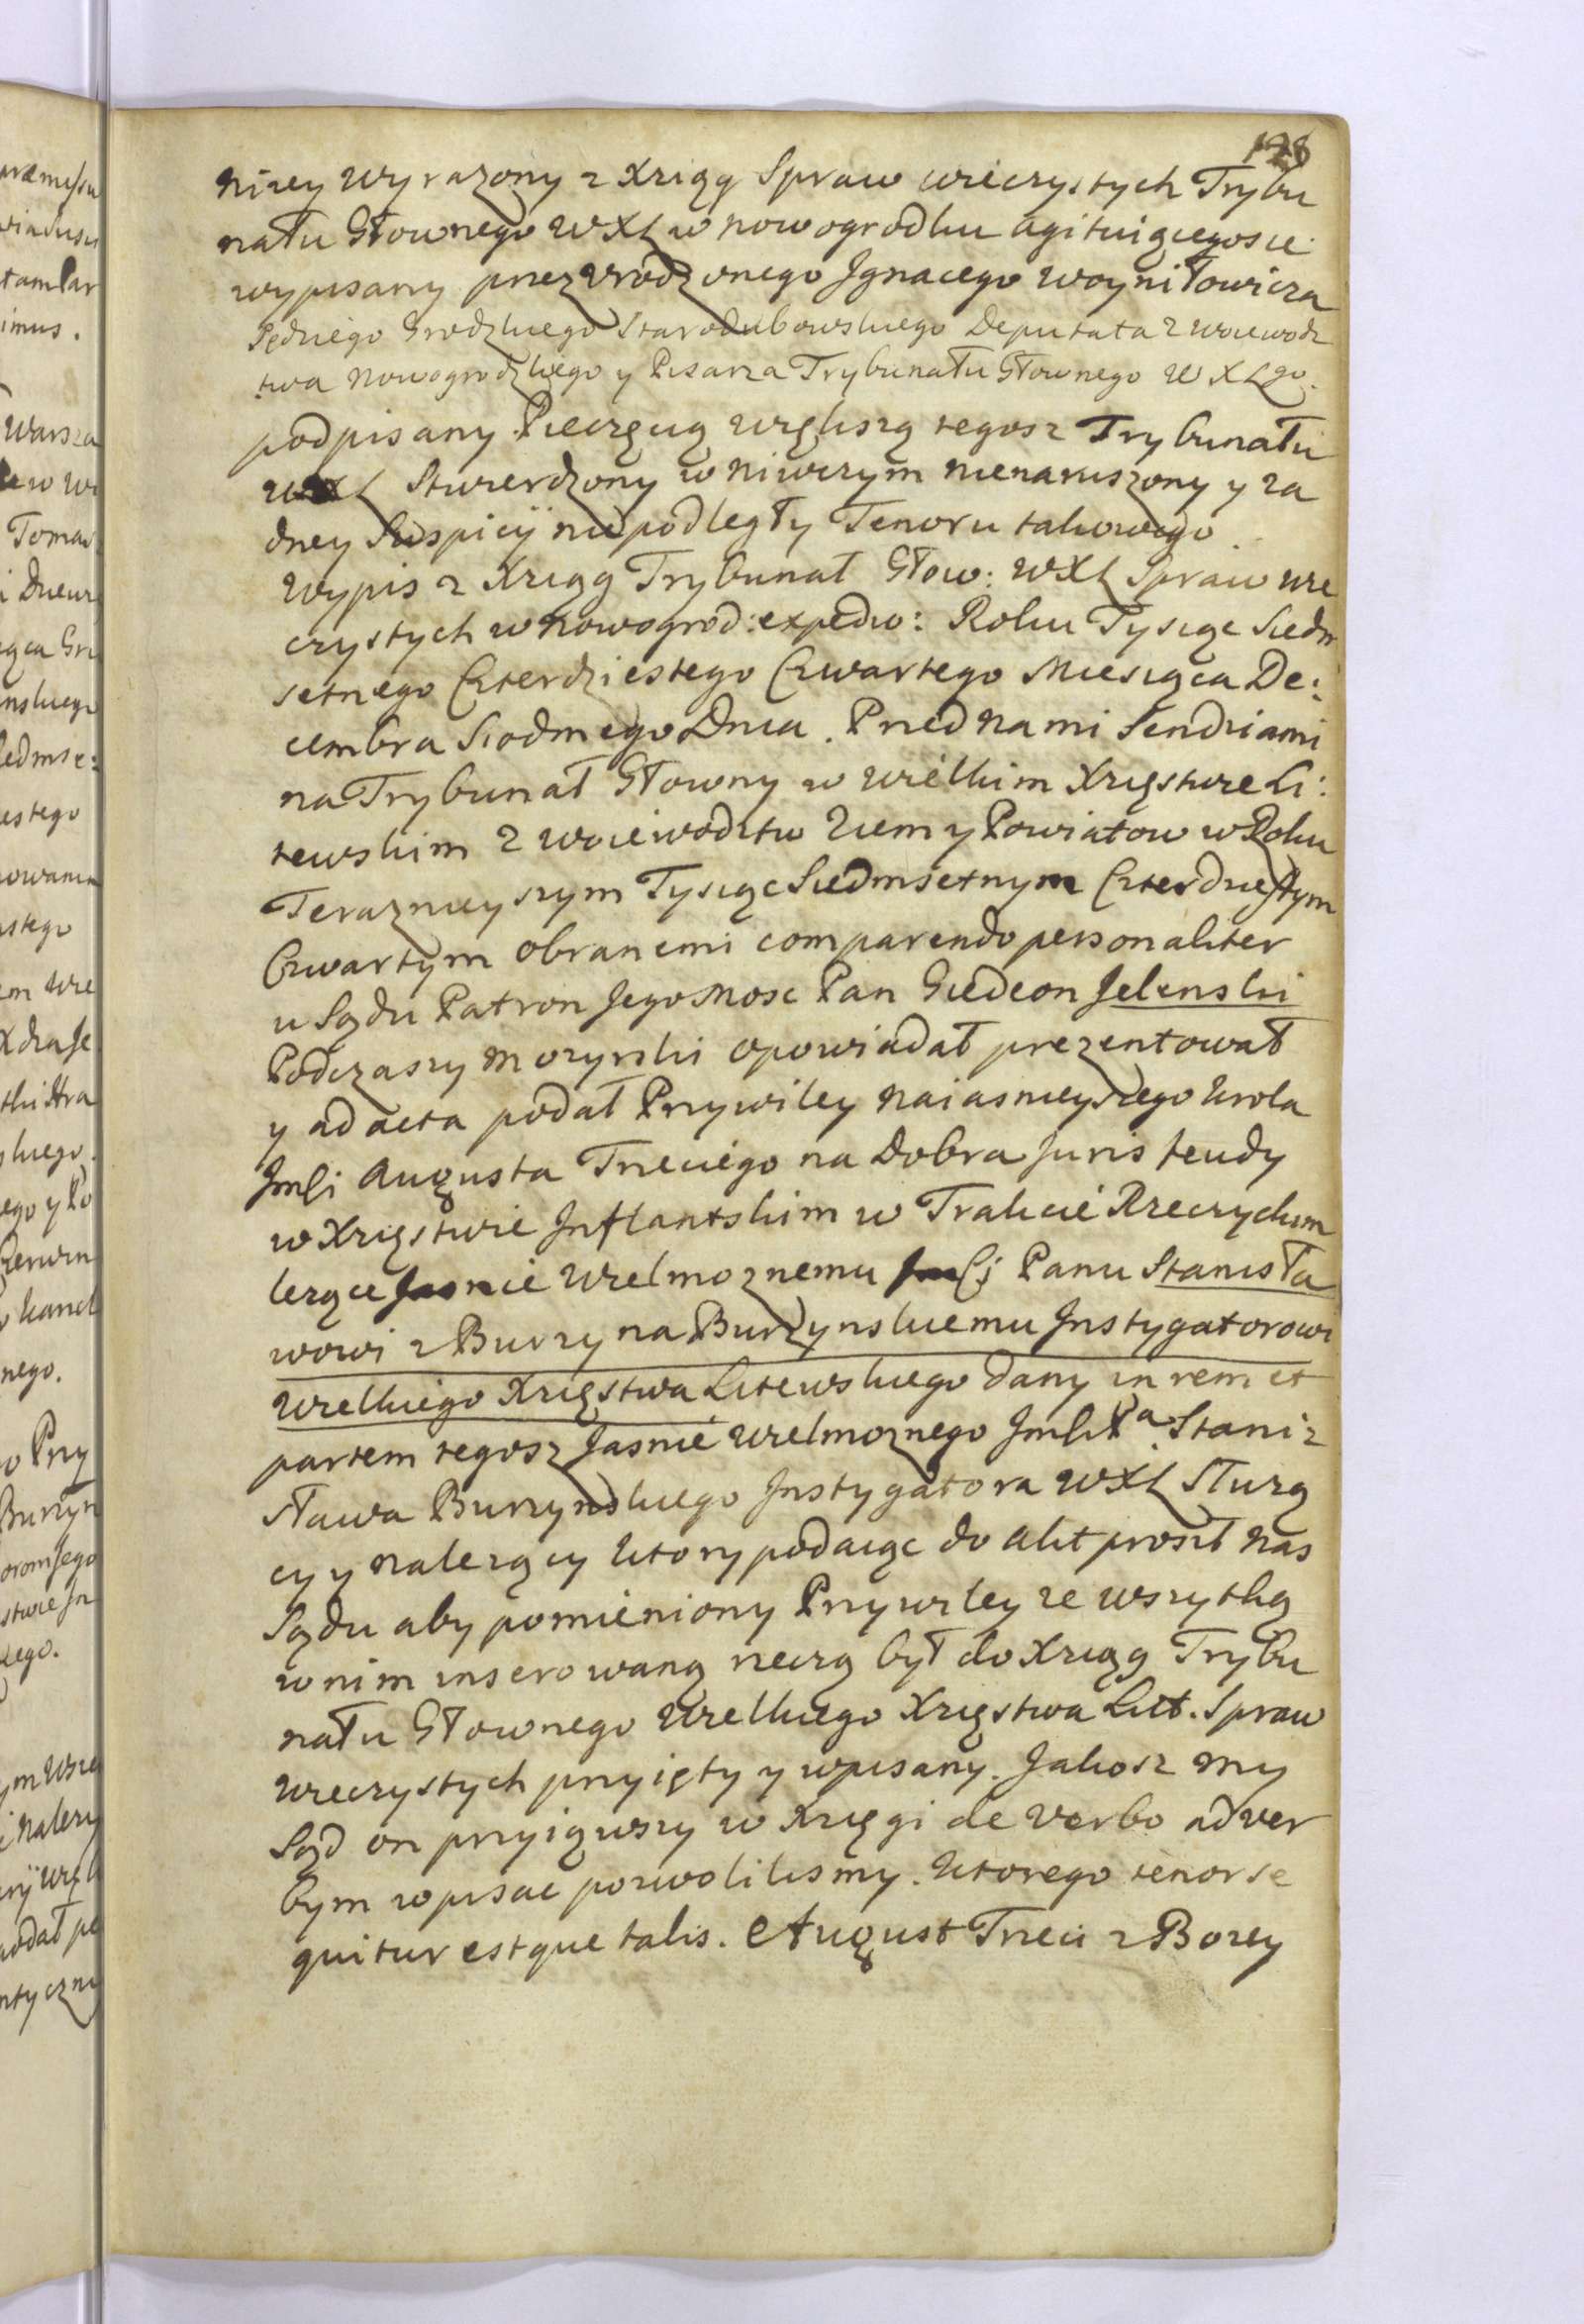 128
niżey wyrazony z Xriąg Spraw wieczystych Trybu
nału Głownego WXL w nowogrodku agituiącegosie
wypisany przez Vrodzonego Jgnacego Woyniłowicza
Sędziego Grodzkiego Starodubowskiego Deputata z woiewodz
twa Nowogrodzkiego y Pisarza Trybunału Głownego W X Lgo.
podpisany Pieczęcią większą tegosz Trybunału
WXL Stwierdzony w niwczym nienaruszony y ża
dney Suspicÿ niepodległy Tenoru takowego
Wypis z Xriąg Trybunał Głow: WXL Spraw wie
czystych w Nowogrod: expedio: Roku Tysiąc Siedm
setnego Czterdziestego Czwartego Miesiąca De:
cembra Siodmego Dnia. Przed Nami Sendziami
na Trybunał Głowny w Wielkim Xięstwie Li:
tewskim z woiewodztw Ziem y Powiatow w Roku
Teraznieyszym Tysiąc Siedmsetnym Czterdziestym
Czwartym obranemi comparendo personaliter
u Sądu Patron Jego Mosc Pan Giedeon Jelenski
Podczaszy Mozyrski opowiadał prezentował
y ad acta podał Przywiley Naiasnieyszego Krola
Jmsci Augusta Trzeciego na Dobra Juris feudy
w Xięstwie Jnflantskim w Trakcie Rzeczyckim
leżące Jasnie Wielmoznemu Jmsci Panu Stanisła
wowi z Burzyna Burzynskiemu Jnstygatorowi
Wielkiego Xięstwa Litewskiego dany in rem et
partem tegosz Jasnie Wielmoznego Jmsci Pa Stani:
sława Burzynskiego Jnstygatora WXL Służą
cy y nalezący ktory podaiąc do akt prosił Nas
Sądu aby pomieniony Przywiley ze wszytką
w nim inserowaną rzeczą był do Xiąg Trybu
nału Głownego Wielkiego Xięstwa Litt. Spraw
Wieczystych przyięty y wpisany. Jakosz my
Sąd on przyiąwszy w Xięgi de verbo ad ver
bum wpisać pozwolilismy. ktorego tenor se
quitur estque talis. August Trzeci z Bożey